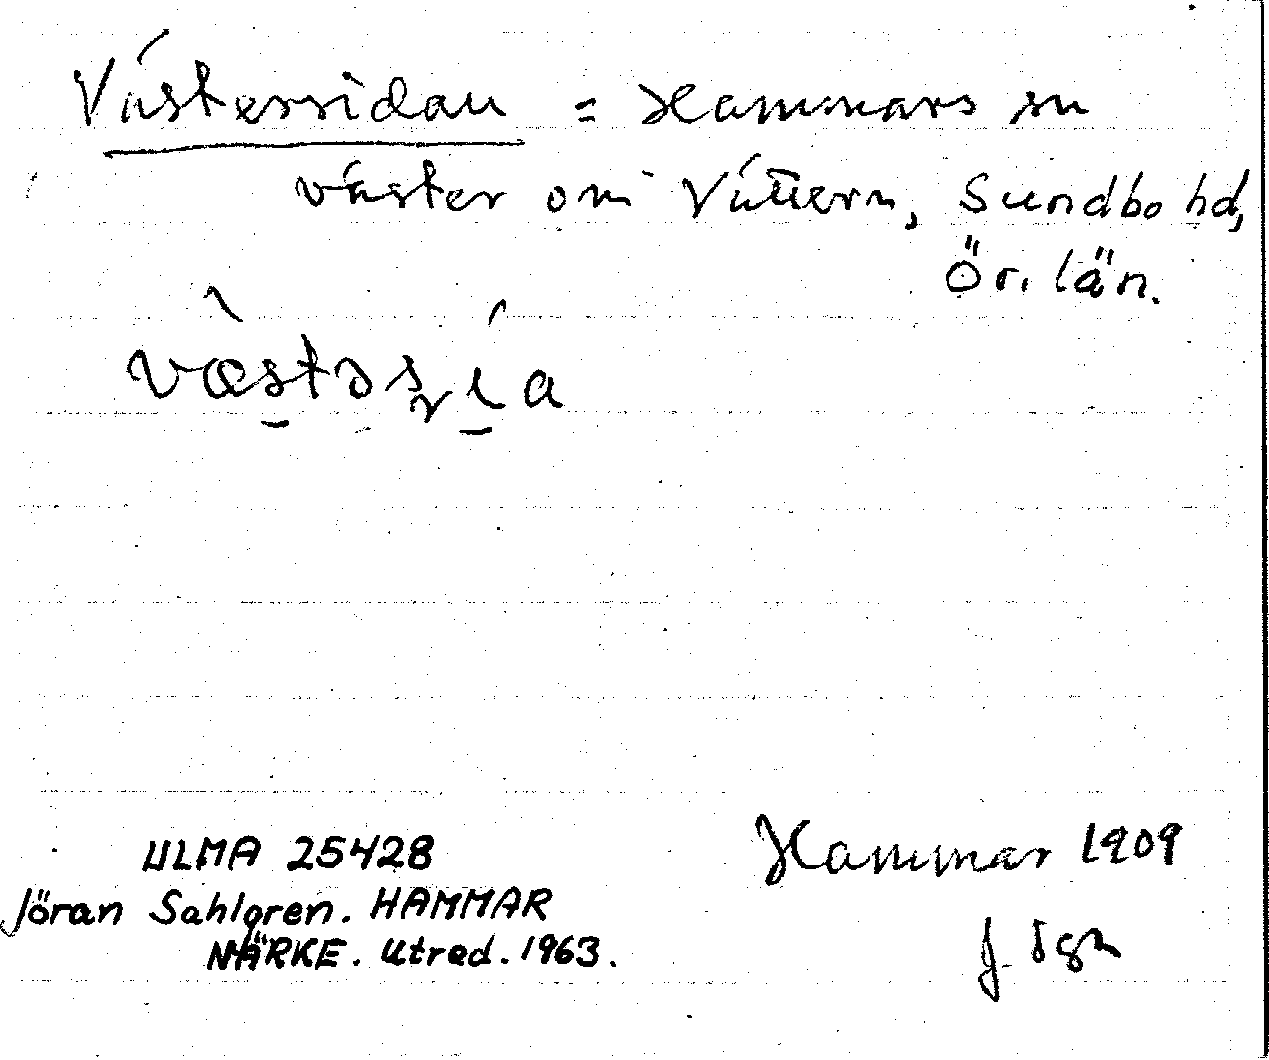 Västersidan = Hammars sn
väster om Vättern, Sundbo hd,
Ör. län.
ULMA 25428
Hammar 1909
Jöran Sahlgren. HAMMAR
NÄRKE. Utred. 1963.
J Sgn